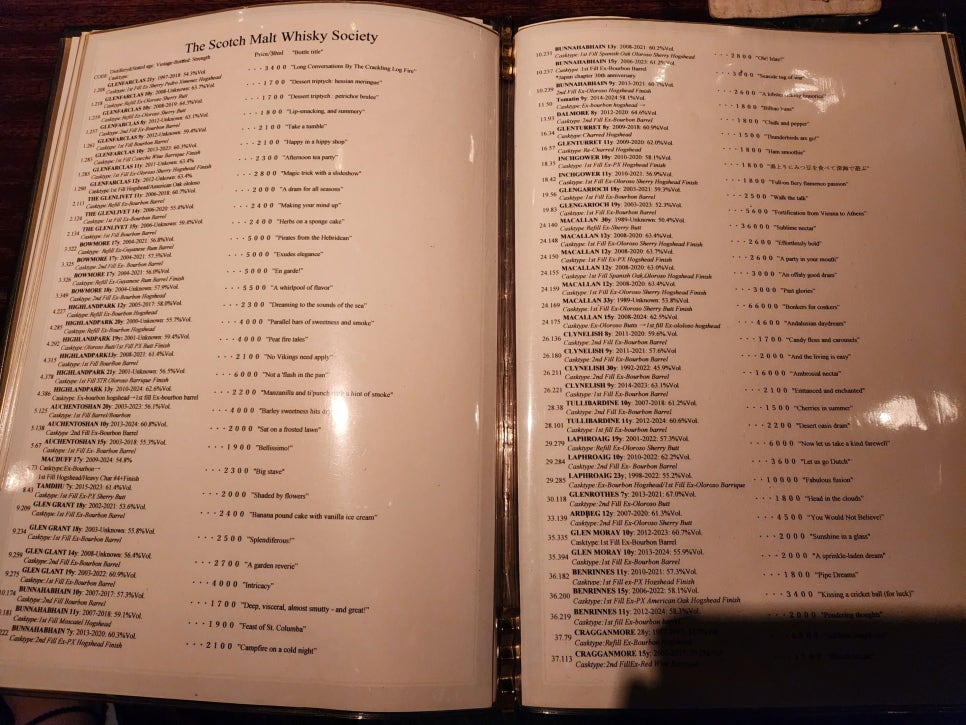 The Scotch Malt Whisky Society
CODE Distilled/Stated age: Vintage-Bottled: Strength Price/30ml "Bottle title"
Casktype:
GLENFARCLAS 21y: 1997-2018: 54.3%Vol. ・・・3400 "Long Conversations By The Crackling Log Fire"
Casktype: 1st Fill Ex-Sherry Pedro Ximenez Hogshead
GLENFARCLAS 10y: 2008-2019: 63.7%Vol. ・・・1700 "Dessert triptych: hessian meringue"
Casktype: Refill Ex-Oloroso Sherry Butt
・・・1700 "Dessert triptych: petrichor brulee"
Casktype: Refill Ex-Oloroso Sherry Butt
GLENFARCLAS 8y: 2012-Unknown: 63.1%Vol. ・・・1800 "Lip-smacking, and summery"
Casktype: 2nd Fill Ex-Bourbon Barrel
1.261 GLENFARCLAS 9y: 2012-Unknown: 59.4%Vol. ・・・2100 "Take a tumble"
Casktype: 1st Fill Bourbon Barrel
GLENFARCLAS 9y: 2013-2023: 60.1%Vol. ・・・2100 "Happy in a hippy shop"
GLENFARCLAS 11y: 2011-Unknown: 63.4% ・・・2300 "Afternoon tea party"
Casktype: 1st Fill Ex-Oloroso Sherry Hogshead
GLENFARCLAS 12y: 2012-Unknown: 63.4% ・・・2800 "Magic trick with a slideshow"
Casktype: 1st Fill Hogshead/American Oak ololoso
2.113 THE GLENLIVET 11y: 2006-2018: 60.7%Vol. ・・・2000 "A dram for all seasons"
Casktype: Refill Ex-Bourbon Barrel
2.124 THE GLENLIVET 14y: 2006-2020: 55.4%Vol. ・・・2400 "Making your mind up"
Casktype: 1st Fill Bourbon Barrel
2.134 THE GLENLIVET 15y: 2006-Unknown: 59.4%Vol. ・・・2400 "Herbs on a sponge cake"
Casktype: Refill Ex-Bourbon Barrel
3.322 BOWMORE 17y: 2004-2021: 56.8%Vol. ・・・5000 "Pirates from the Hebridean"
Casktype: Refill Ex-Guyanese Rum Barrel
3.325 BOWMORE 17y: 2004-2021: 57.3%Vol. ・・・5000 "Exudes elegance"
Casktype: 2nd Fill Ex- Bourbon Barrel
3.326 BOWMORE 17y: 2004-2021: 56.0%Vol. ・・・5000 "En garde!"
Casktype: Refill Ex-Guyanese Rum Barrel Finish
3.349 BOWMORE 18y: 2004-Unknown: 57.9%Vol. ・・・5500 "A whirlpool of flavor"
Casktype: 2nd Fill Ex-Bourbon Hogshead
4.237 HIGHLANDPARK 12y: 2005-2017: 58.0%Vol. ・・・2300 "Dreaming to the sounds of the sea"
Casktype: Refill Ex-Bourbon Barrel
4.285 HIGHLANDPARK 20y: 2000-Unknown: 55.7%Vol. ・・・4000 "Parallel bars of sweetness and smoke"
Casktype: Refill Ex-Bourbon Hogshead
4.292 HIGHLANDPARK 19y: 2001-Unknown: 59.4%Vol. ・・・4000 "Peat fire tales"
Casktype: Oloroso Butt/1st Fill PX Butt Finish
4.315 HIGHLANDPARK13y: 2008-2021: 61.4%Vol. ・・・2100 "No Vikings need apply"
Casktype: 1st Fill Bourbon Barrel
4.378 HIGHLANDPARK 21y: 2001-Unknown: 56.5%Vol. ・・・6000 "Not a flash in the pan"
Casktype: 1st Fill STR Oloroso Barrique Finish
4.386 HIGHLANDPARK 13y: 2010-2024: 62.6%Vol. ・・・2200 "Manzanilla and ti'punch with a hint of smoke"
Casktype: Ex-bourbon hogshead→1st fill Ex-bourbon barrel
5.125 AUCHENTOSHAN 20y: 2003-2023: 56.1%Vol. ・・・4000 "Barley sweetness hits
Casktype: 1st Fill Barrel/Bourbon
5.138 AUCHENTOSHAN 10y: 2013-2024: 60.8%Vol. ・・・2000 "Sat on a frosted lawn"
Casktype: 2nd Fill Ex-Bourbon Barrel
5.67 AUCHENTOSHAN 15y: 2003-2018: 55.3%Vol. ・・・1900 "Bellissimo!"
Casktype: 1st Fill Ex-Bourbon Barrel
MACDUFF 17y: 2009-2024: 54.8% ・・・2300 "Big stave"
73 Casktype:Ex-Bourbon→
1st Fill Hogshead/Heavy Char #4+Finish
8.43 TAMDHU 7y: 2015-2023: 61.4%Vol. ・・・2000 "Shaded by flowers"
Casktype: 1st Fill Ex-PX Sherry Butt
9.209 GLEN GRANT 18y: 2002-2021: 53.6%Vol. ・・・2400 "Banana pound cake with vanilla ice cream"
Casktype: 2nd Fill Ex-Bourbon Barrel
9.234 GLEN GRANT 18y: 2003-Unknown: 55.8%Vol. ・・・2500 "Splendiferous!"
Casktype: 1st Fill Ex-Bourbon Hogshead
9.259 GLEN GLANT 14y: 2008-Unknown: 56.4%Vol. ・・・2700 "A garden reverie"
Casktype:2nd Fill Ex-Bourbon Barrel
9.275 GLEN GLANT 19y: 2003-2022: 60.9%Vol. ・・・4000 "Intricacy"
Casktype: 1st Fill Ex-Bourbon Barrel
10.174 BUNNAHABHAIN 10y: 2007-2017: 57.3%Vol. ・・・1700 "Deep, visceral, almost smutty - and great!"
Casktype:2nd Fill Bourbon Barrel
BUNNAHABHAIN 11y: 2007-2018: 59.1%Vol. ・・・1900 "Feast of St. Columba"
Casktype: 1st Fill Moscatel Hogshead
BUNNAHABHAIN 7y: 2013-2020: 60.3%Vol. ・・・2100 "Campfire on a cold night"
Casktype: 2nd Fill Ex-PX Hogshead Finish
10.231 BUNNAHABHAIN 13y: 2008-2021: 60.2%Vol. ・・・2800 "Oh! Islay!"
Casktype: 1st Fill Spanish Oak Oloroso Hogshead
10.237 BUNNAHABHAIN 15y: 2006-2023: 61.2%Vol. ・・・3000 "Seaside tug of war"
Casktype: 1st Fill Ex-Bourbon Barrel
*Japan chapter 30th anniversary
10.239 BUNNAHABHAIN 9y: 2013-2021: 60.7%Vol.
2nd Fill Ex-Oloroso Hogshead Finish
11.50 Tomatin 9y: 2014-2024: 58.1%Vol. ・・・1800 "Bilbao
Casktype: Ex-bourbon hogshead →
13.93 DALMORE 8y: 2012-2020: 64.6%Vol. ・・・1800 "Chilli and pepper"
Casktype: 2nd Fill Ex-Bourbon Barrel
16.34 GLENTURRET 8y: 2009-2018: 60.9%Vol. ・・・1500 "Thunderbirds are go!"
Casktype: Charred Hogshead
16.57 GLENTURRET 11y: 2009-2020: 62.0%Vol. ・・・1800 "Ham smoothie"
Casktype: Re-Charred Hogshead
18.35 INCHGOWER 10y: 2010-2020: 58.1%Vol.
Casktype: 1st Fill Ex-PX Hogshead Finish
18.42 INCHGOWER 11y: 2010-2021: 56.9%Vol. ・・・1800 "Full-on fiery flamenco passion"
Casktype: 1st Fill Ex-Oloroso Sherry Hogshead Finish
19.56 GLENGARIOCH 18y: 2003-2021: 59.3%Vol. ・・・2500 "Walk the talk"
Casktype: 2nd Fill Ex-Bourbon Barrel
19.83 GLENGARIOCH 19y: 2003-2023: 52.3%Vol. ・・・5600 "Fortification from Vienna to Athens"
Casktype: 1st Fill Ex-Bourbon Hogshead
24.140 MACALLAN 30y: 1989-Unknown: 50.4%Vol. ・・・36000 "Sublime nectar"
Casktype: Refill Ex-Sherry Butt
24.148 MACALLAN 12y: 2008-2020: 63.4%Vol. ・・・2600 "Effortlessly bold"
Casktype: 1st Fill Ex-Oloroso Sherry Hogshead Finish
24.150 MACALLAN 12y: 2008-2020: 63.7%Vol. ・・・2600 "A party in your mouth"
Casktype: 1st Fill Ex-PX Hogshead Finish
24.155 MACALLAN 12y: 2008-2020: 63.0%Vol. ・・・3000 "An offaly good dram"
Casktype: 1st Fill Spanish Oak,Oloroso Hogshead Finish
24.159 MACALLAN 12y: 2008-2020: 63.4%Vol. ・・・3000 "Past glories"
Casktype: 1st Fill Ex-Oloroso Sherry Hogshead Finish
24.169 MACALLAN 33y: 1989-Unknown: 53.8%Vol. ・・・66000 "Bonkers for conkers"
Casktype: 1st Fill Ex-Oloroso Sherry Butt Finish
24.175 MACALLAN 15y: 2008-2024: 62.5%Vol. ・・・4600 "Andalusian daydreams"
Casktype: Ex-Oloroso Butts →1st fill ex-ololoso hogshead
26.136 CLYNELISH 8y: 2011-2020: 59.6%Vol. ・・・1700 "Candy floss and carousels"
Casktype: 1st Fill Ex-Bourbon Barrel
26.180 CLYNELISH 9y: 2011-2021: 57.6%Vol. ・・・2000 "And the living is easy"
Casktype: 1st Fill Ex-Bourbon Barrel
26.211 CLYNELISH 30y: 1992-2022: 45.9%Vol. ・・・16000 "Ambrosial nectar"
Casktype: 1st Fill Ex-Bourbon Barrel
26.221 CLYNELISH 9y: 2014-2023: 63.1%Vol. ・・・2100 "Entranced and enchanted"
Casktype: 1st Fill Ex-Bourbon Barrel
28.38 TULLIBARDINE 10y: 2007-2018: 61.2%Vol. ・・・1500 "Cherries in summer"
Casktype: 2nd Fill Ex-Bourbon Barrel
28.101 TULLIBARDINE 11y: 2012-2024: 60.6%Vol. ・・・2200 "Desert oasis dram"
Casktype: 1st fill Ex-bourbon barrel
29.279 LAPHROAIG 19y: 2001-2022: 57.3%Vol. ・・・6000 "Now let us take a kind farewell"
Casktype: Refill Ex-Oloroso Sherry Butt
29.284 LAPHROAIG 10y: 2010-2022: 62.2%Vol. ・・・3600 "Let us go Dutch"
Casktype:2nd Fill Ex-Bourbon Barrel
29.285 LAPHROAIG 23y; 1998-2022: 55.2%Vol. ・・・10000 "Fabulous fusion"
Casktype: Ex-Bourbon Hogshead/1st Fill Ex-Oloroso Barrique
30.118 GLENROTHES 7y: 2013-2021: 67.0%Vol. ・・・1800 "Head in the clouds"
Casktype: 1st Fill Ex-Oloroso Sherry Butt
33.139 ARDBEG 12y: 2007-2020: 61.3%Vol. ・・・4500 "You Would Not Believe!"
Casktype:2nd Fill Ex-Oloroso Sherry Butt
35.335 GLEN MORAY 10y: 2012-2023: 60.7%Vol. ・・・2000 "Sunshine in a glass"
Casktype: 1st Fill Ex-Bourbon Barrel
35.394 GLEN MORAY 10y: 2013-2024: 55.9%Vol. ・・・2000 "A sprinkle-laden dream"
Casktype: 1st Fill Ex-Bourbon Barrel
36.182 BENRINNES 11y: 2010-2021: 57.3%Vol. ・・・1800 "Pipe Dreams"
Casktype: 1st Fill ex-PX Hogshead Finish
36.200 BENRINNES 15y: 2006-2022: 58.1%Vol. ・・・3400 "Kissing a cricket ball (for luck)"
Casktype: 1st Fill Ex-PX American Oak Hogshead Finish
36.219 BENRINNES 11y: 2012-2024: 58.3%Vol. ・・・2000 "Pondering thoughts"
Casktype: 1st fill Ex-bourbon barrel
37.79 CRAGGANMORE 28y:
Casktype:Refill Ex-Bourbon Hogshead
37.113 CRAGGANMORE 15y:
Casktype:2nd FillEx-Red Wine